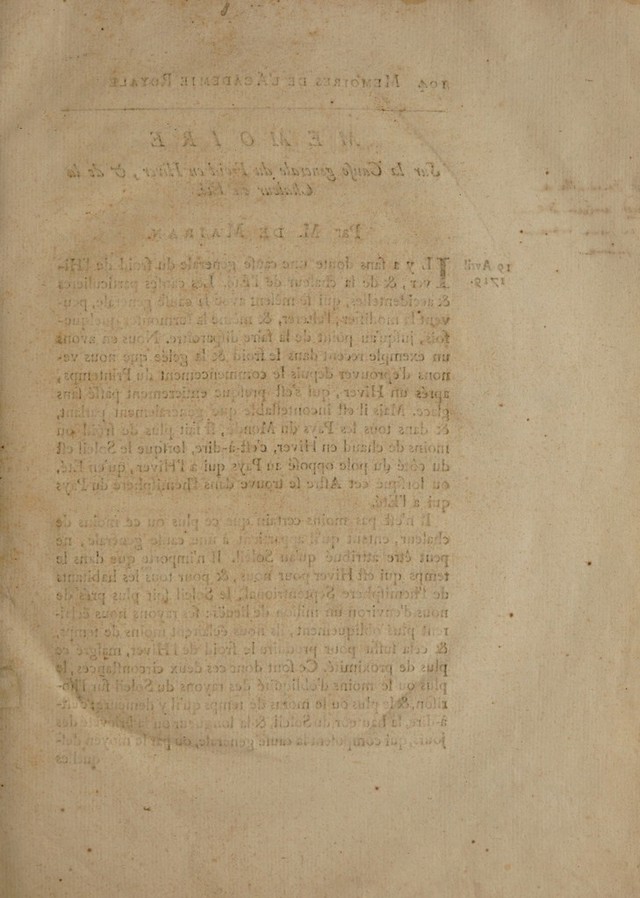 104 MEMOIRES DE L'ACADEMIE ROYALE
MEMOIRE
Sur la Cause generale du Froid en Hiver, & de la
Chaleur en Eté.
Par M. DE MAIRAN.
19 Avril
1719.
IL y a sans doute une cause générale du froid de l'Hi-
ver, & de la chaleur de l'Eté. Les causes particulieres
& accidentelles, qui se mêlent avec la cause generale, peu-
vent la modifier, l'alterer, & même la surmonter quelque-
fois, jusqu'au point de la faire disparoître. Nous en avons
un exemple recent dans le froid & la gelée que nous ve-
nons d'éprouver depuis le commencement du Printemps,
aprés un Hiver, qui s'est presque entierement passé sans
glace. Mais il est incontestable que généralement parlant,
& dans tous les Pays du Monde, il fait plus de froid ou
moins de chaud en Hiver, c'est-à-dire, lorsque le Soleil est
du côté du pole opposé au Pays qui a l'Hiver, qu'en Eté,
ou lorsque cet Astre se trouve dans l'hemisphére du Pays
qui a l'Eté.
Il n'est pas moins certain que ce plus ou ce moins de
chaleur, entant qu'il appartient à une cause generale, ne
peut être attribué qu'au Soleil. Il n'importe que dans le
temps qui est Hiver pour nous, & pour tous les habitants
de l'hemisphére Septentrional, le Soleil soit plus prés de
nous d'environ un million de lieuës; ses rayons nous éclai-
rent plus obliquement, ils nous éclairent moins de temps,
& cela suffit pour produire le froid de l'Hiver, malgré ce
plus de proximité. Ce sont donc ces deux circonstances, le
plus ou le moins d'obliquité des rayons du Soleil sur l'ho-
rison, & le plus ou le moins de temps qu'il y demeure, c'est-
à-dire, la hauteur du Soleil, & la longueur ou la briéveté des
jours, qui composent la cause generale, du par le moyen des-
quelles